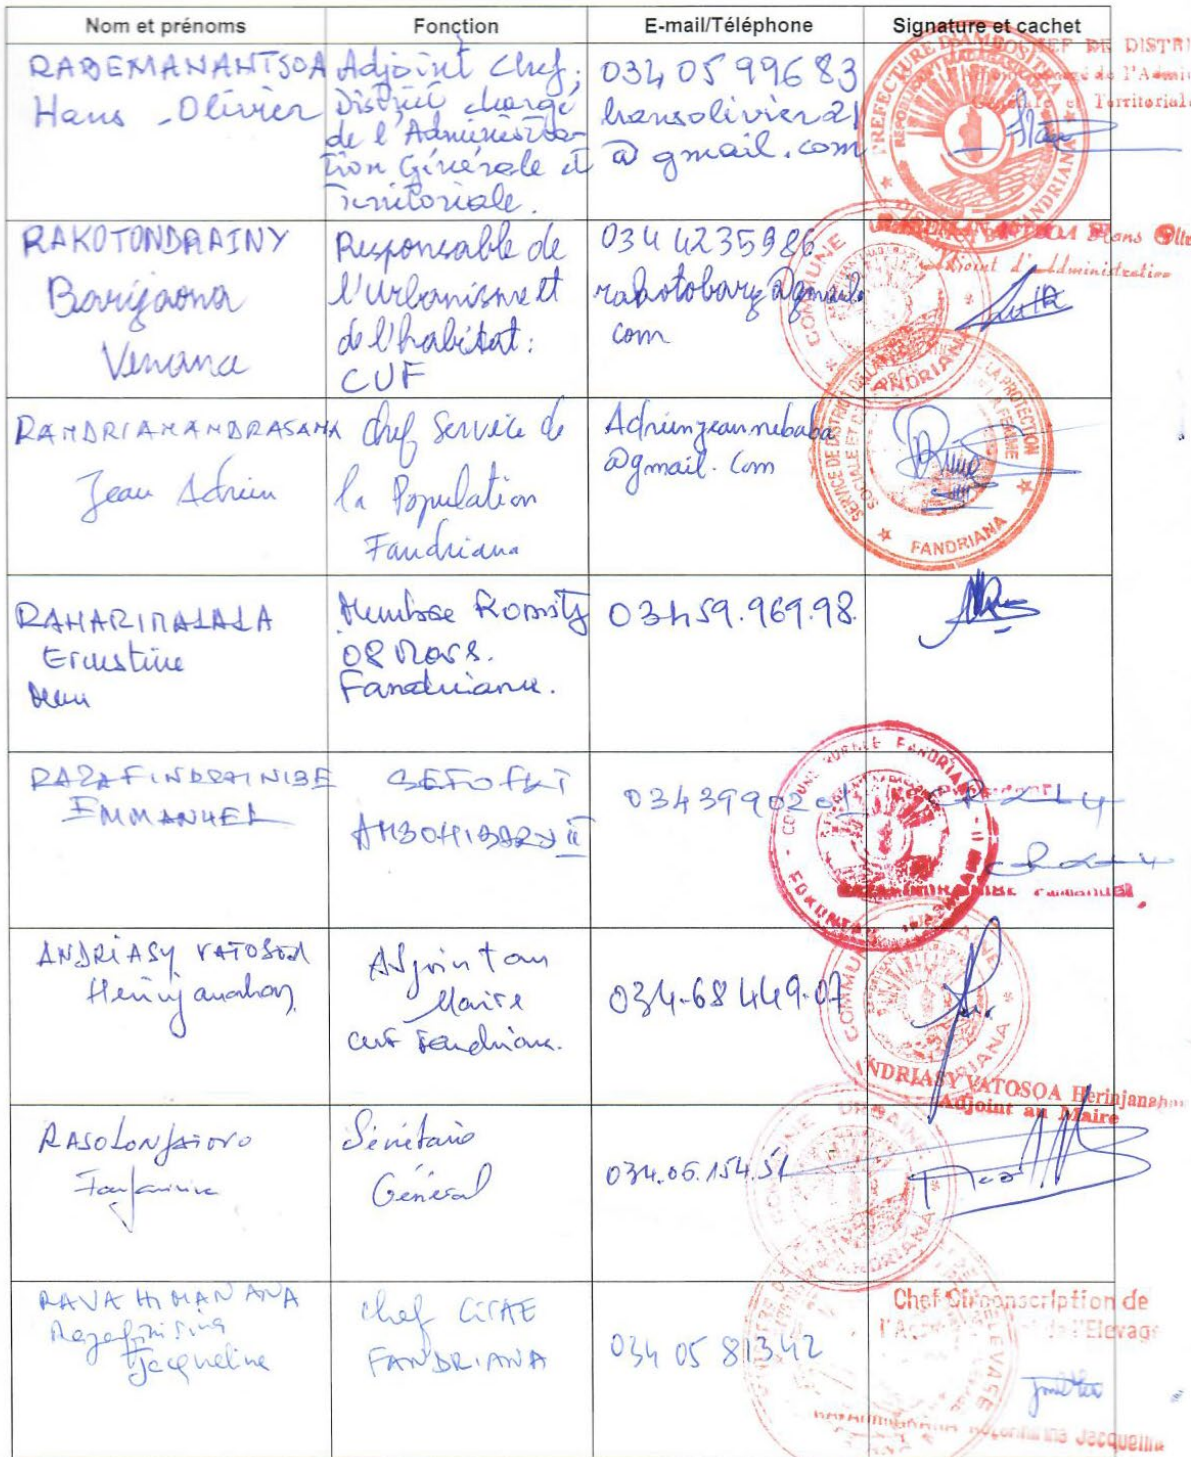 Nom et prénoms
Fonction
E-mail/Téléphone
Signature et cachet
RADEMANANTSOA
Hans - Olivier
Adjoint Chef,
District chargé
de l'Administra-
tion Générale et
Territoriale.
034 05 996 83
hansolivier21
@gmail.com
PREFECTURE D'AMBOSITRA
CHEF DE DISTRI
de l'Admi
Générale et Territoriale
FANDRIANA
RAKOTONDRAINY
Barijaona
Venance
Responsable de
l'urbanisme et
de l'habitat:
CUF
034 4235986
rakotobary@gmail.
com
Hans Oli
Adjoint d'Administration
COMMUNE
RANDRIANANDRASANA
Jean Adrien
Chef Service de
la Population
Fandriana
Adrienjeannebaba
@gmail.com
SERVICE DE DISTRICT DE LA PROTECTION
SOCIALE ET DE LA FEMME
FANDRIANA
RAHARIMALALA
Ernestine
Membre Komity
08 Mars.
Fandriana.
034 59.969.98.
RAZAFINDRAINIBE
EMMANUEL
SEFO FKT
AMBOHIBARY II
034 39 902 01
COMMUNE URBAINE FANDRIANA - II
FOKONTANY
Emmanuel
ANDRIASY VATOSOA
Herinjanahary
Adjoint au
Maire
CUF Fandriana.
034.68 449.07
COMMUNE URBAINE
ANDRIANA
NDRIASY VATOSOA Herinjanahar
Adjoint au Maire
RASOLONJATOVO
Sécrétaire
Général
034.06.154.51
URBAINE
RAVAHIMANANA
Jacqueline
Chef CIRAE
FANDRIANA
034 05 813 42
Chef Circonscription de
l'Elevage
Jacqueline